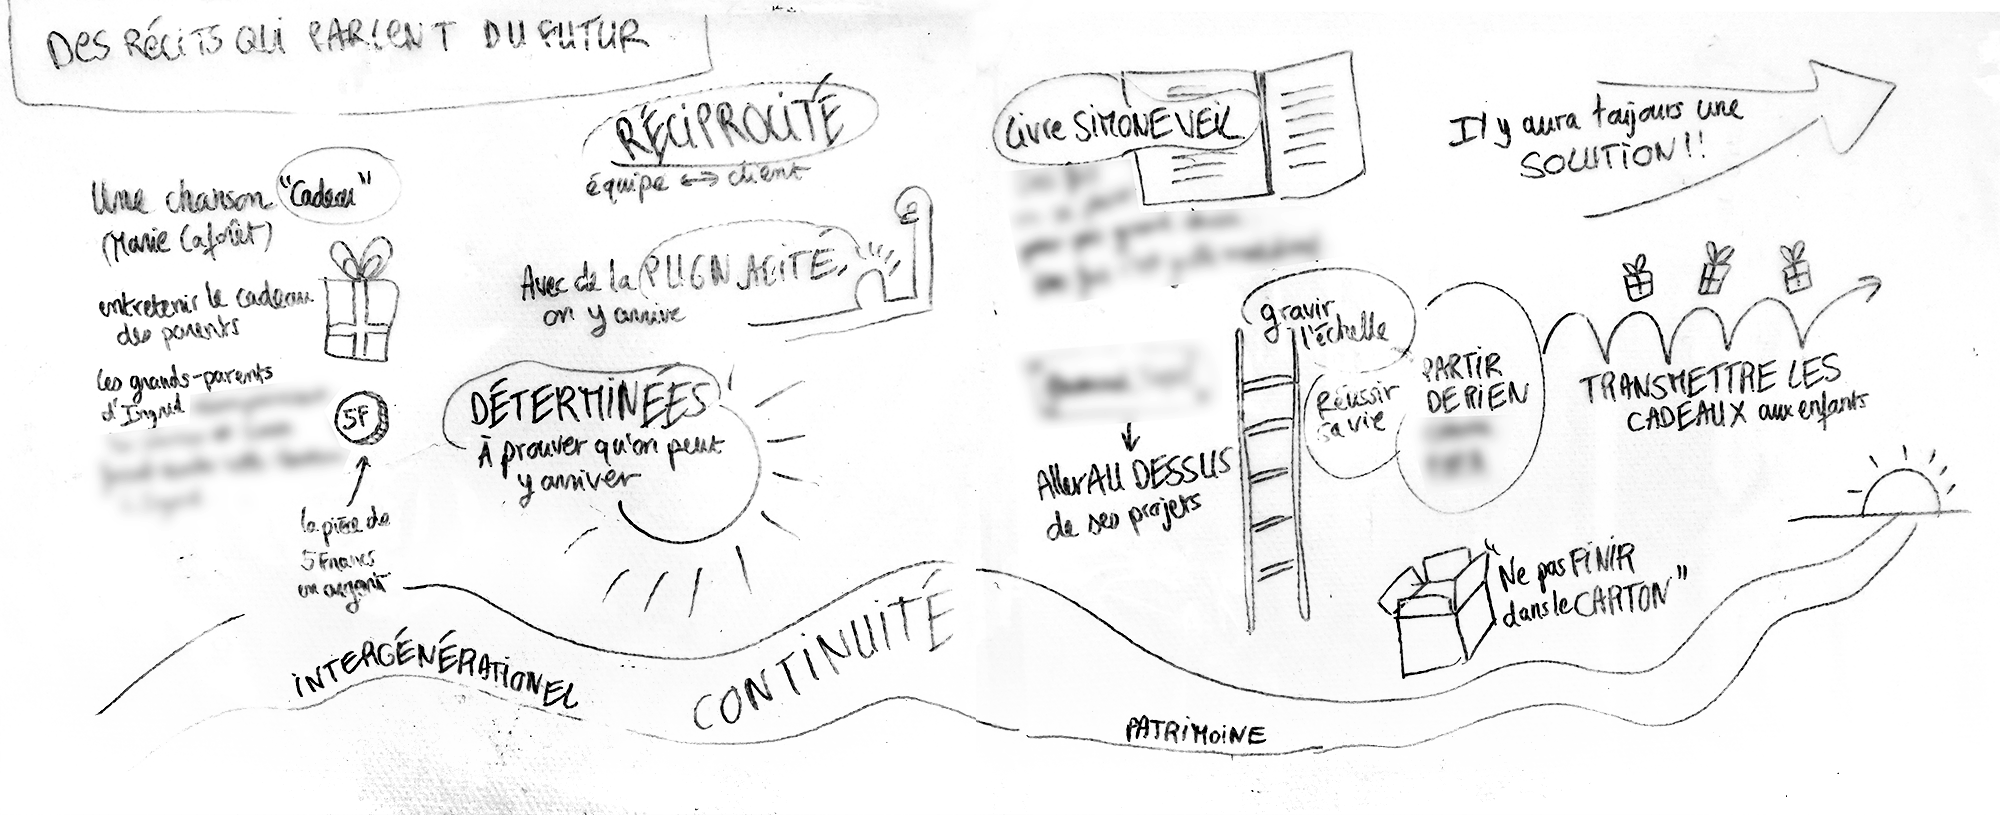 DES RÉCITS QUI PARLENT DU FUTUR
Une chanson "Cadeau"
(Marie Laforêt)
entretenir le cadeau
des parents
les grands-parents
d'Ingrid
5F
la pièce de
5 Francs
en argent
RÉCIPROCITÉ
équipe ↔ client
Avec de la PUGNACITÉ,
on y arrive
DÉTERMINÉES
À prouver qu'on peut
y arriver
Livre SIMONE VEIL
Il y aura toujours une
SOLUTION!!
gravir
l'échelle
Réussir
sa vie
PARTIR
DE RIEN
Aller AU DESSUS
de ses projets
TRANSMETTRE LES
CADEAUX aux enfants
"Ne pas FINIR
dans le CARTON"
INTERGÉNÉRATIONEL
CONTINUITÉ
PATRIMOINE